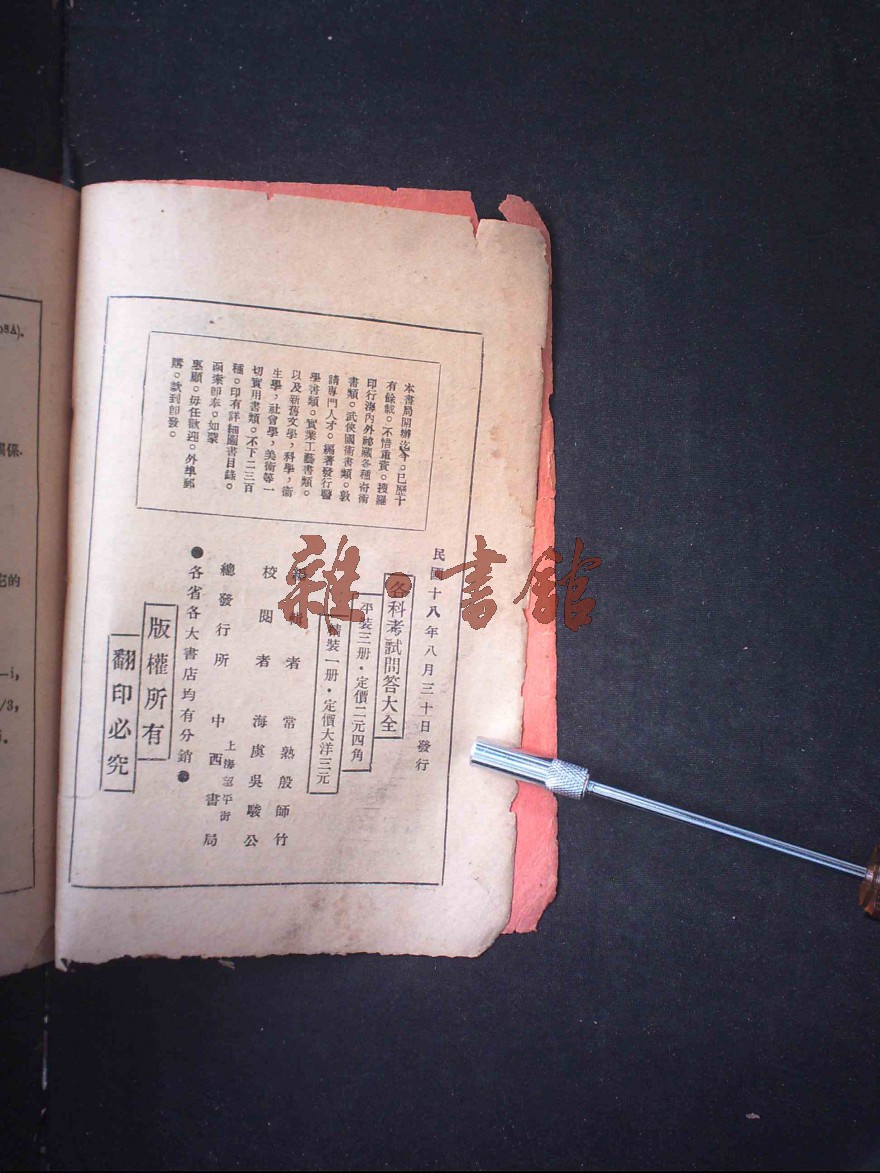 本書局開辦迄今。已歷十
有餘載。不惜重資。搜羅
印行海內外祕藏各種奇術
書類。武俠國術書類。敦
請專門人才。編著發行醫
學書類。實業工藝書類。
以及新舊文學，科學，衞
生學，社會學，美術等一
切實用書類。不下二三百
種。印有詳細圖書目錄。
函索卽奉。如蒙
惠顧。毋任歡迎。外埠郵
購。款到卽發。
民國十八年八月三十日發行
各科考試問答大全
平裝三册·定價二元四角
精裝一册·定價大洋三元
者 常熟殷師竹
校閱者 海虞吳駿公
總發行所 上海望平街 中西書局
●各省各大書店均有分銷●
版權所有
翻印必究
雜·書館
08A).
關係.
它的
—i,
/3,